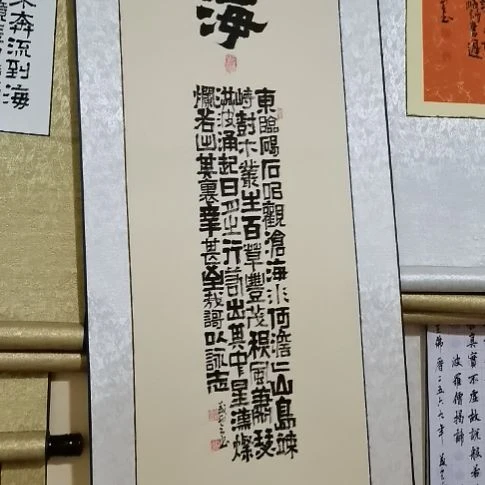 海
東臨碣石㠯觀滄海水何澹〻山島竦
峙樹木叢生百草豐茂秋風蕭瑟
洪波涌起日月之行若出其中星漢燦
爛若出其裏幸甚至哉歌以詠志
奔流到海
真實不虛故說般若
波羅僧揭諦
二五六六年